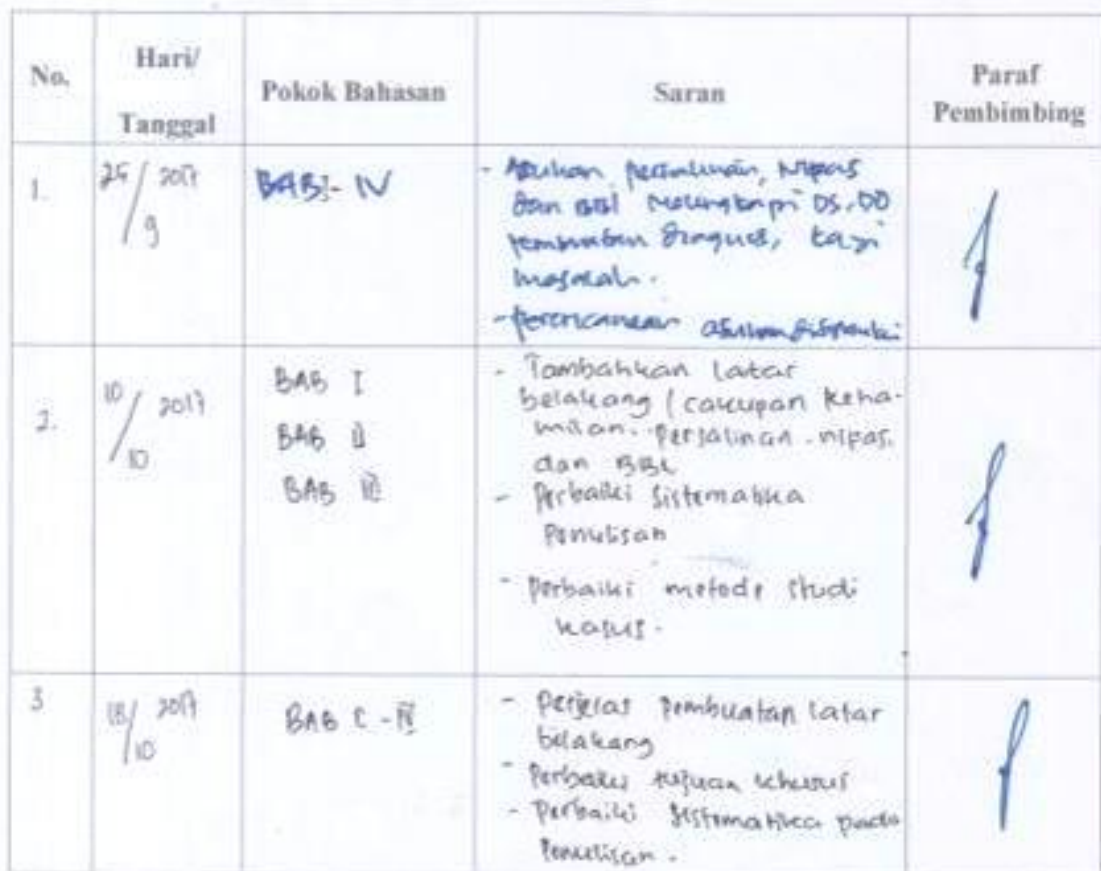 No. Hari/ Tanggal Pokok Bahasan Saran Paraf Pembimbing
1. 25/9 2017 BAB I - IV - Asuhan persalinan, Nipas
dan BBL melengkapi DS, DO
pembuatan diagnosis, kaji
masalah.
- perencanaan asuhan
2. 10/10 2017 BAB I - Tambahkan latar
belakang (cakupan keha-
BAB II milan. persalinan. nipas.
dan BBL
BAB III - Perbaiki Sistematika
Penulisan
- perbaiki metode studi
kasus.
3 18/10 2017 BAB I - IV - Perjelas pembuatan latar
belakang
- Perbaiki tujuan khusus
- Perbaiki sistematika pada
Penulisan.